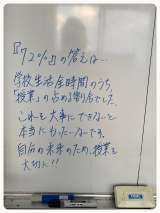 『72%』の答えは…
学校生活全時間のうち
「授業」の占める割合でした。
これを大事にできないと
本当にもったいないです。
自分の未来のため、授業を
大切に!!